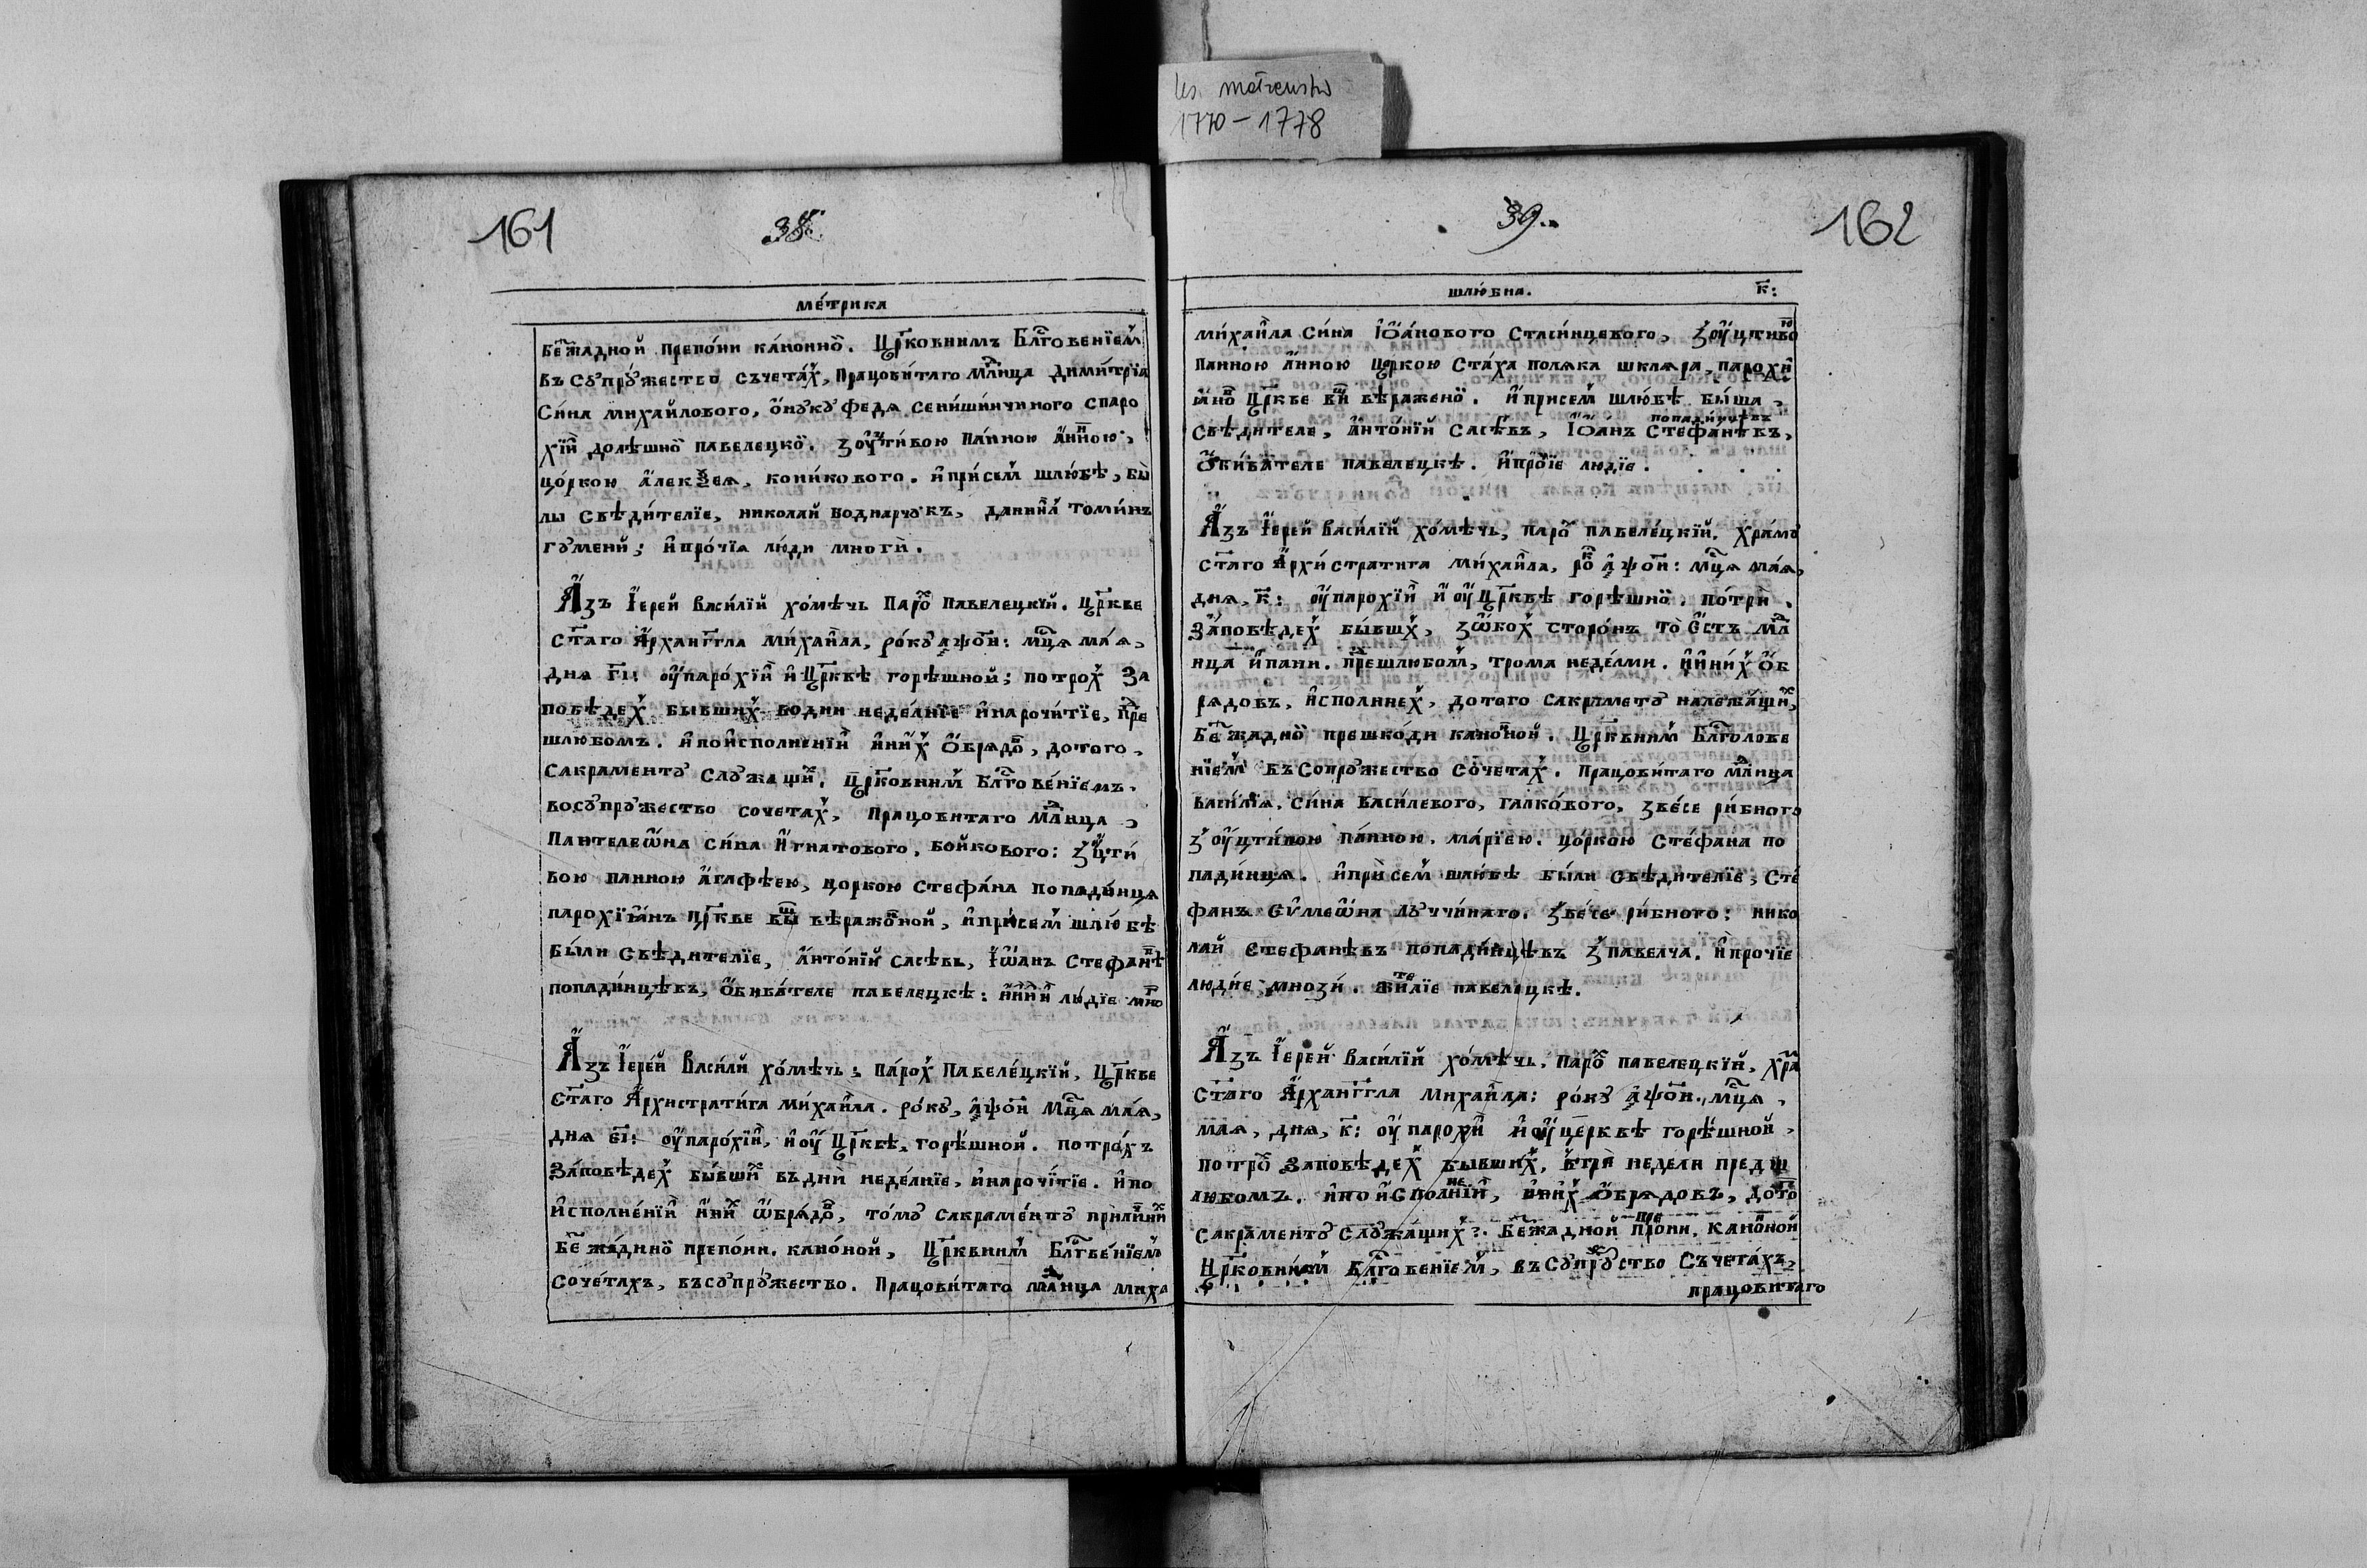 ks. małżeństw
1770-1778
161
38.
метрика
беⷥжадной препони каноннѡ. Цр҃ковнимъ Блг҃овенїеⷨ
въ сꙋпрꙋжество съчетаⷯ, Працовитаго млⷣнца димитрїа
Сина михайлового, ѻнꙋкꙋ федѧ сенишинчиного спаро
хїи долѣшнѡ павелецкѡ. зоуⷱтивою Панною анⷩною,
цоркою алекѯеѧ, коникового. ипри семⷨ шлюбѣ, бы
лы Свѣдителїе, николай воднарчꙋкъ, данииⷧ томинъ
гꙋмений; ипрочїѧ люди многи.
Азъ Iерей василїй хомѣчь Пароⷯ Павелецкїй. Цр҃кве
ст҃аго Арханг҃гла михаила, рокꙋ ҂аѱо҃и: мцⷭ҇ѧ маѧ,
днѧ г҃i: оупарохїи иЦр҃квѣ горѣшной; потроⷯ за
повѣдеⷯ бывшиⷯ водни неделнїе инарочитїе, преⷣ
шлюбомъ. ипоисполненїи иниⷯ Ѻбрѧдоⷡ, дотого
сакраментꙋ слꙋжащиⷯ, цр҃ковниⷨ блг҃овенїемъ.
восꙋпрꙋжество сочетаⷯ, Працовитаго млⷣнца
Пантелеѡна сина Игнатового, бойкового: зⷹцти
вою панною агафѣею, цоркою стефана попадинцѧ
парохїѧнъ цр҃кве вⷲы вѣражоⷩной, ипри семⷨ шлюбѣ
были свѣдителїе, Антонїй сасѣвъ, Iѡанъ стефанⷡѣ
попадинцѣвъ, Ѻбивателе павелецкѣ: иинїи людїе мноⷢ
Азъ Iерей василй хомѣчь; Пароⷯ Павелецкїй, Цр҃кве
ст҃аго Архистратига михаила. рокꙋ, ҂аѱо҃и мцⷭ҇ѧ маѧ,
днѧ є҃i: оупарохїи, иоу Цр҃квѣ, горѣшной. потрохъ
заповѣдеⷯ бывшиⷯ въ дни неделнїе, инарочитїе. ипо
исполненїи иниⷯ ѡбрѧдоⷡ, томꙋ сакраментꙋ прилични
беⷥ жаднѡ препони. каноной, Цр҃квниⷨ Блг҃венїеⷨ
сочетахъ, въсꙋпрꙋжество. Працовитаго млⷣнца миха
39.
162
шлюбна. к҃:
михаила сина Iѡанового стасинцевого, зⷥоуцтивоⷸ
Панною Анною цоркою стаха полѧка шклѧра, парохи
ѧноⷡ Цр҃кве виⷲ вѣраженѡ. ипри семⷨ шлюбѣ быша,
свѣдителе, Антонїй сасѣвъ, Iѡанъ стефанѣвъ,
попадинцѣвъ
Ѻбивателе павелецкѣ. ипроⷱїе людїе.
Азъ Iерей василїй хомѣчь, пароⷯ павелецкїй. храмꙋ
ст҃аго Архистратига михаила, роⷦ ҂аѱо҃и: мцⷭ҇ѧ маѧ,
днѧ, к҃: оупарохїи и оу Цр҃квѣ горѣшнѡ. потри.
заповѣдеⷯ бывшⷯ, зѡбоⷯ сторонъ то єстъ млⷣа
нца ипани. преⷣшлюбоⷨ, трома неделми. ииниⷯ Ѻб
рѧдовъ, исполнинеⷯ, дотого сакраметꙋ належащиⷯ,
беⷥ жаднѡ прешкоди каноной. Цр҃квниⷨ Блг҃олове
нїеⷨ въсопрꙋжество сочетаⷯ. Працовитаго млⷣнца
василїѧ, сина василевого, галкового, звесе рибного
зⷥоуцтивою панною. марїею. цоркою стефана по
падинцѧ. ипри семⷨ шлюбѣ были свѣдителїе, сте
фанъ симеѡна лꙋччинаго. звесе рибного: нико
лай стефанѣвъ попадинцѣвъ зⷥ павелча. ипрочїе
людие, мнози. житеⷧлїе павелецкѣ.
Азъ Iерей василїй хомѣчь, пароⷯ павелецкїй, храⷨ
ст҃аго Арханг҃гла михаила: рокꙋ ҂аѱо҃и., мцⷭ҇ѧ,
маѧ, днѧ, к҃: оу парохїи иоуцеркве горѣшной,
потроⷯ заповѣдеⷯ бывшиⷯ, втри недели предш
любомъ. ипо исполненїи, иниⷯ Ѻбрѧдовъ, дотоⷢ
сакраментꙋ слꙋжащиⷯ: беⷥжадной препони, каноной
Цр҃ковниⷨ блг҃овенїеⷨ, въсꙋпрꙋⷤство съчетахъ,
працовитаго